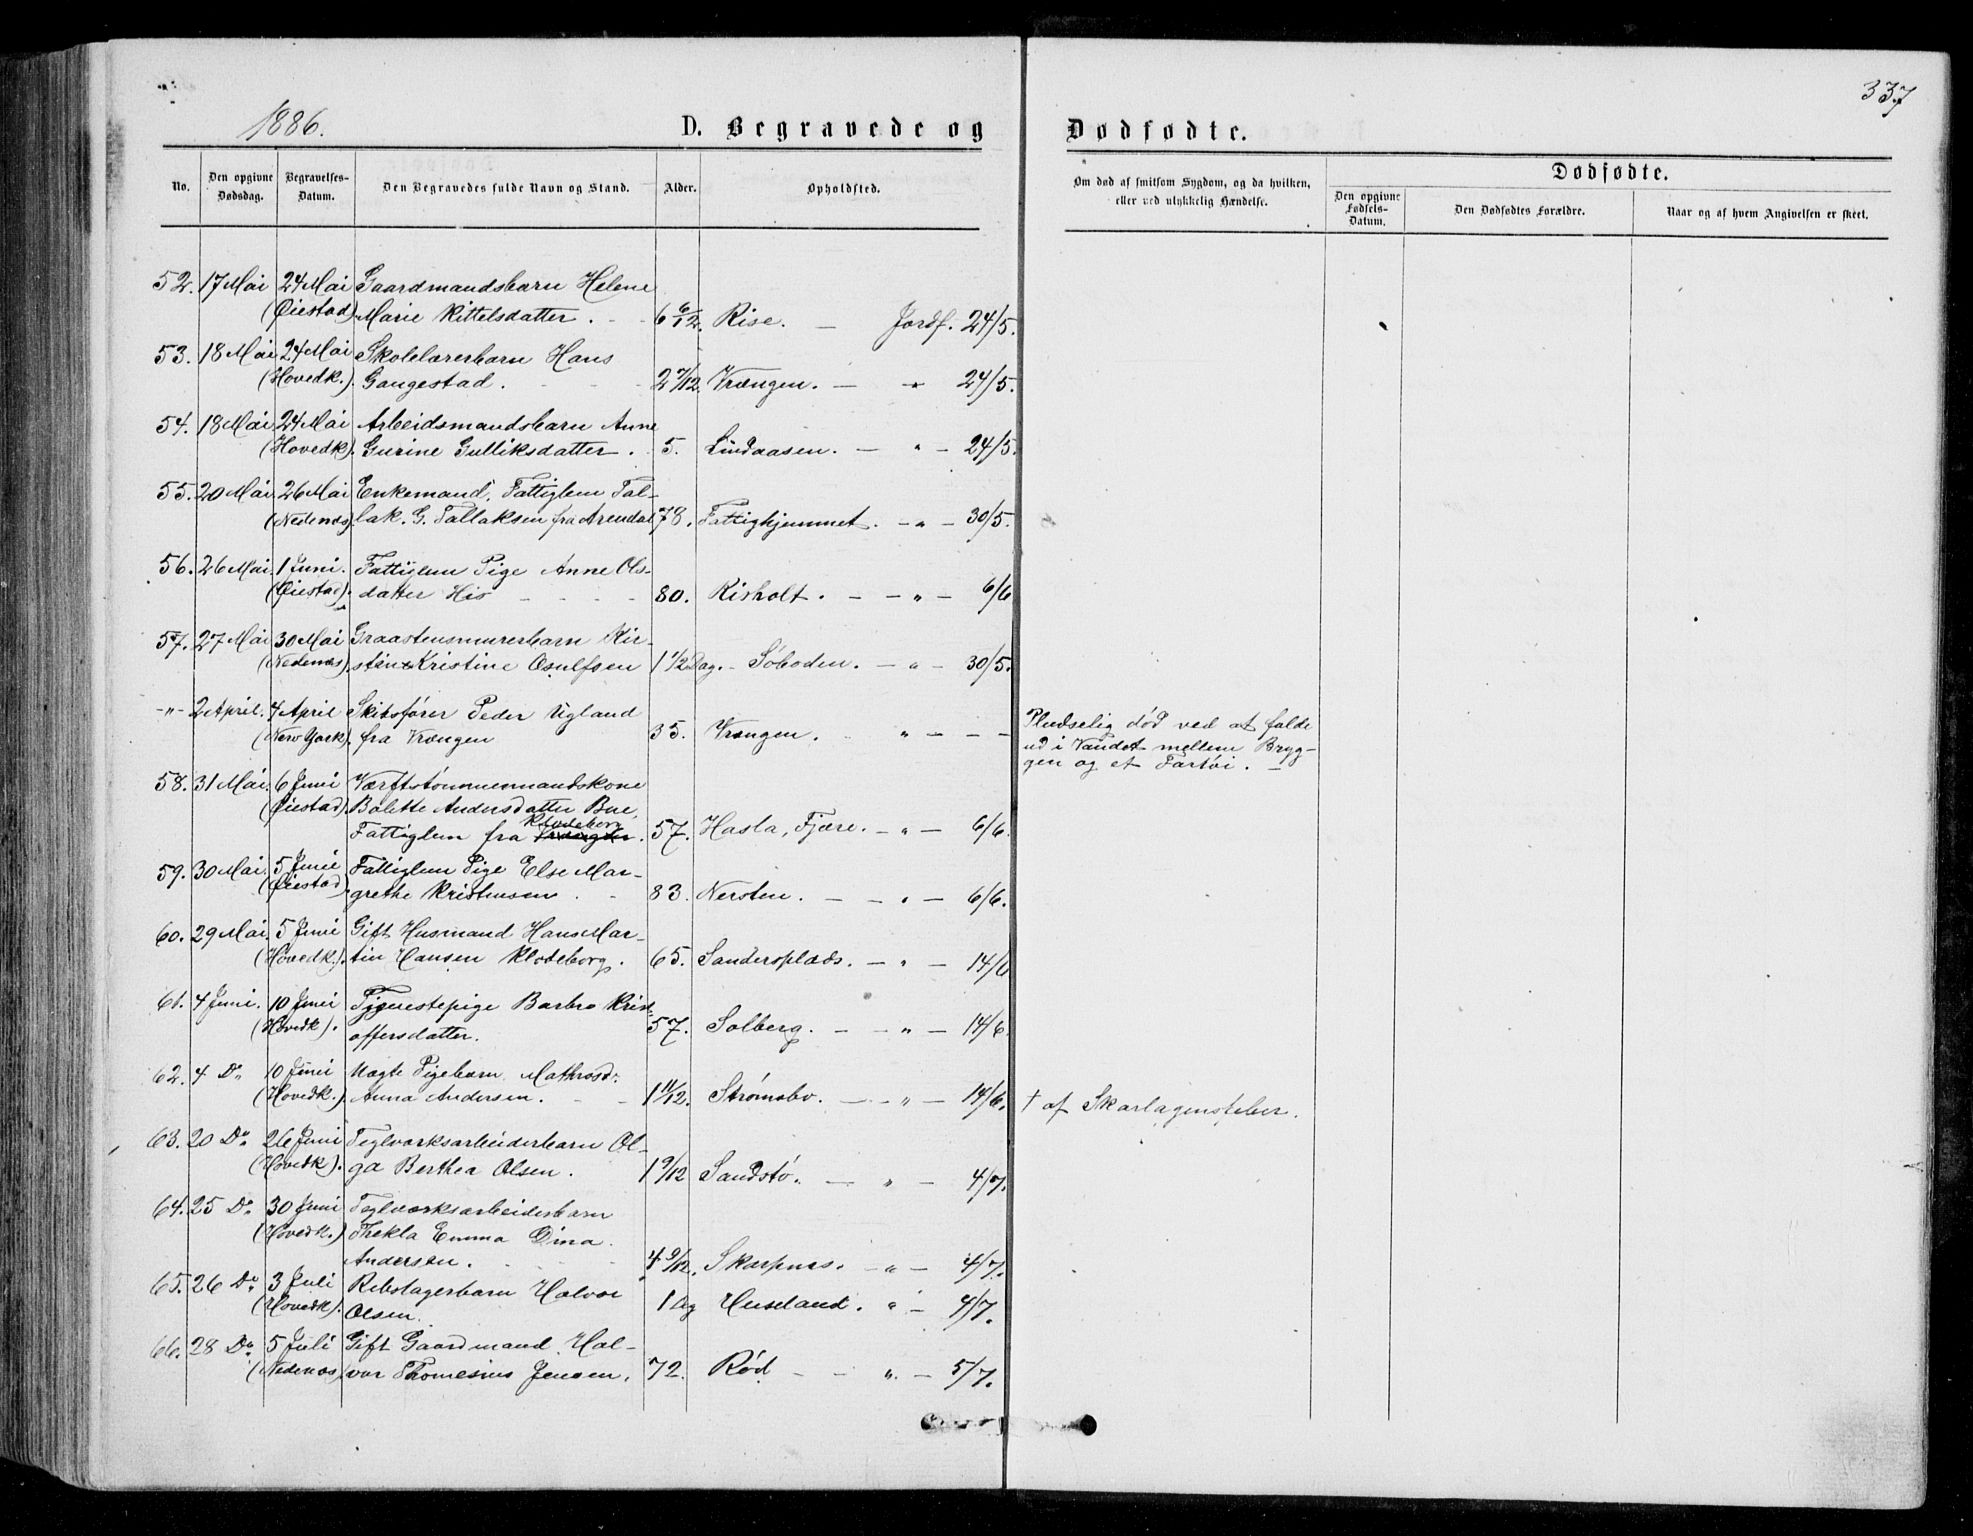 337
1886.
D. Begravede og Dødfødte.
No.
Den opgivne Dødsdag.
Begravelses-Datum.
Den Begravedes fulde Navn og Stand.
Alder.
Opholdsted.
Om død af smitsom Sygdom, og da hvilken,
eller ved ulykkelig Hændelse.
Dødfødte.
Den opgivne Fødsels-Datum.
Den Dødfødtes Forældre.
Naar og af hvem Angivelsen er skeet.
52. 17 Mai 24 Mai Gaardmandsbarn Helene
(Øiestad) Marie Kittelsdatter. 6 6/12. Rise. — Jordf. 24/5.
53. 18 Mai 24 Mai Skolelærerbarn Hans
(Hovedk.) Gangestad. 2 7/12. Vrængen. — " 24/5.
54. 18 Mai 24 Mai Arbeidsmandsbarn Anne
(Hovedk) Gurine Gulliksdatter. 5. Lindaasen. — " — 24/5.
55. 20 Mai 26 Mai Enkemand, Fattiglem Tal-
(Nedenæs) lak. G. Tallaksen fra Arendal 78. Fattighjemmet. — " — 30/5.
56. 26 Mai 1 Juni. Fattiglem Pige Anne Ols-
(Øiestad). datter His 80. Risholt. — — " — 6/6
57. 27 Mai 30 Mai Graastensmurerbarn Kir-
(Nedenæs). stine Kristine Osulfsen 1 1/2 Dag. - Søboden. — " — 30/5.
-"- 2 April. 4 April Skibsfører Peder Ugland
(New York). fra Vrængen 35. Vrængen. " — — —
Pludselig død ved at falde
ud i Vandet mellem Bryg-
gen og et Fartøi. —
58. 31 Mai. 6 Juni Værftstømmermandskone
(Øiestad). Bolette Andersdatter Bue,
Klodeborg
Fattiglem fra Vrængen. 57. Hasla, Fjære. — " — 6/6.
59. 30 Mai. 5 Juni Fattiglem Pige Else Mar-
(Øiestad) grethe Kristensen. 83. Nersten. — — " — 6/6.
60. 29 Mai. 5 Juni Gift Husmand Hans Mar-
(Hovedk.). tin Hansen Klodeborg. 65. Sandersplads. — " — 14/6
61. 4 Juni. 10 Juni Tjenestepige Barbro Krist-
(Hovedk). offersdatter. 57. Solberg. — — " — 14/6.
62. 4 Do 10 Juni Uægte Pigebarn. Mathrosd.
(Hovedk.) Anna Andersen. 1 11/12. Strømsbo. — — " — 14/6. † af Skarlagensfeber.
63. 20 Do 26 Juni Teglværksarbeiderbarn Ol-
(Hovedk). ga Berthea Olsen. 1 9/12 Sandstø. — " — 4/7.
64. 25 Do 30 Juni Teglværksarbeiderbarn
(Hovedk.) Thekla Emma Dina
Andersen. 4 9/12. Skarpnes. - " — 4/7.
65. 26 Do 3 Juli Rebslagerbarn Halvor
(Hovedk). Olsen. 1 Dg Huseland. " — 4/7.
66. 28 Do 5 Juli Gift Gaardmand Hal-
(Nedenæs) vor Thomesius Jensen. 72. Rød — — " — 5/7.